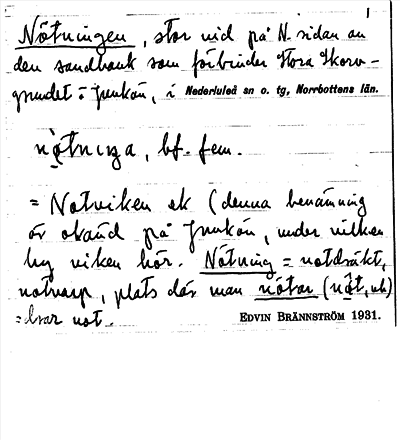 1
Nötningen, stor vid på N. sidan av
den sandbank som förbinder Stora Skorv-
grundet o. Junkön, i Nederluleå sn o. tg, Norrbottens län.
nò̤tnıŋa, bf. fem.
= Notviken ek (denna benämning
är okänd på Junkön, under vilken
by viken hör. Nötning = notdräkt,
notvarp, plats där man nötar (nö̤t, vb)
= drar not.
EDVIN BRÄNNSTRÖM 1931.